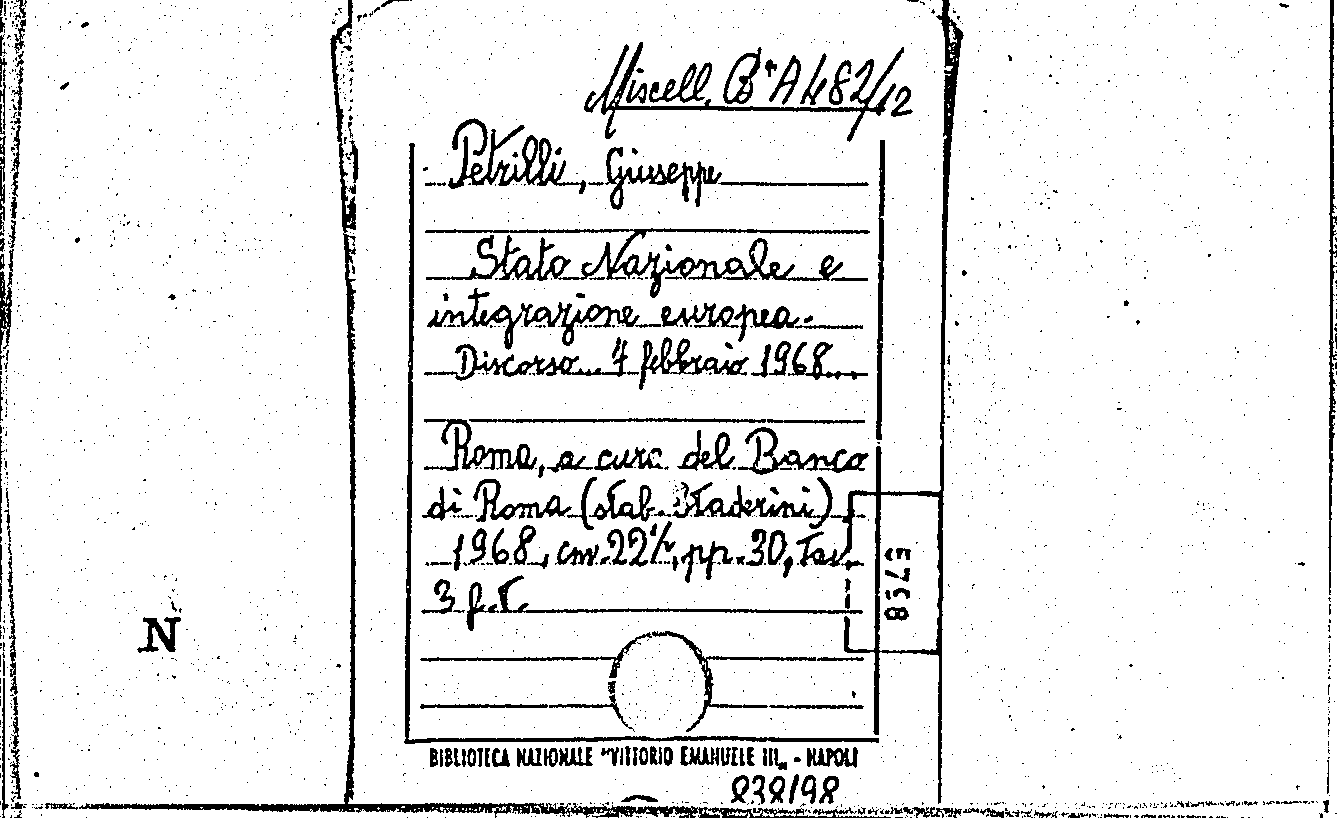 Miscell. Bª A 482/12
Petrilli, Giuseppe
Stato Nazionale e
integrazione europea.
Discorso... 7 febbraio 1968...
Roma, a cura del Banco
di Roma (stab. Staderini),
1968, cm. 22½, pp. 30, tav.
3 f.t.
E798
N
BIBLIOTECA NAZIONALE "VITTORIO EMANUELE III„ - NAPOLI
838/98